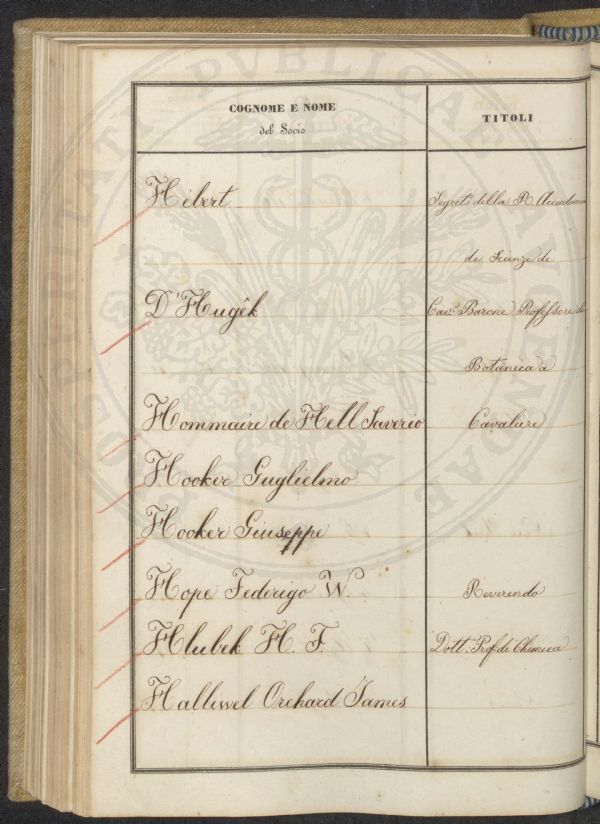 COGNOME E NOME
del Socio
TITOLI
Hébert
Segret. della R. Accademia
di Scienze de
D'Hugêk
Cav. Barone Professore di
Botanica a
Hommaire de Hell Saverio
Cavaliere
Hooker Guglielmo
Hooker Giuseppe
Hope Federigo W.
Reverendo
Hlubek H. F.
Dott. Prof. di Chimica
Halliwel Orchard James
PVBLICAE